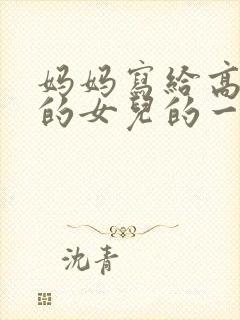 妈妈寫給高
的女兒的一
沈青